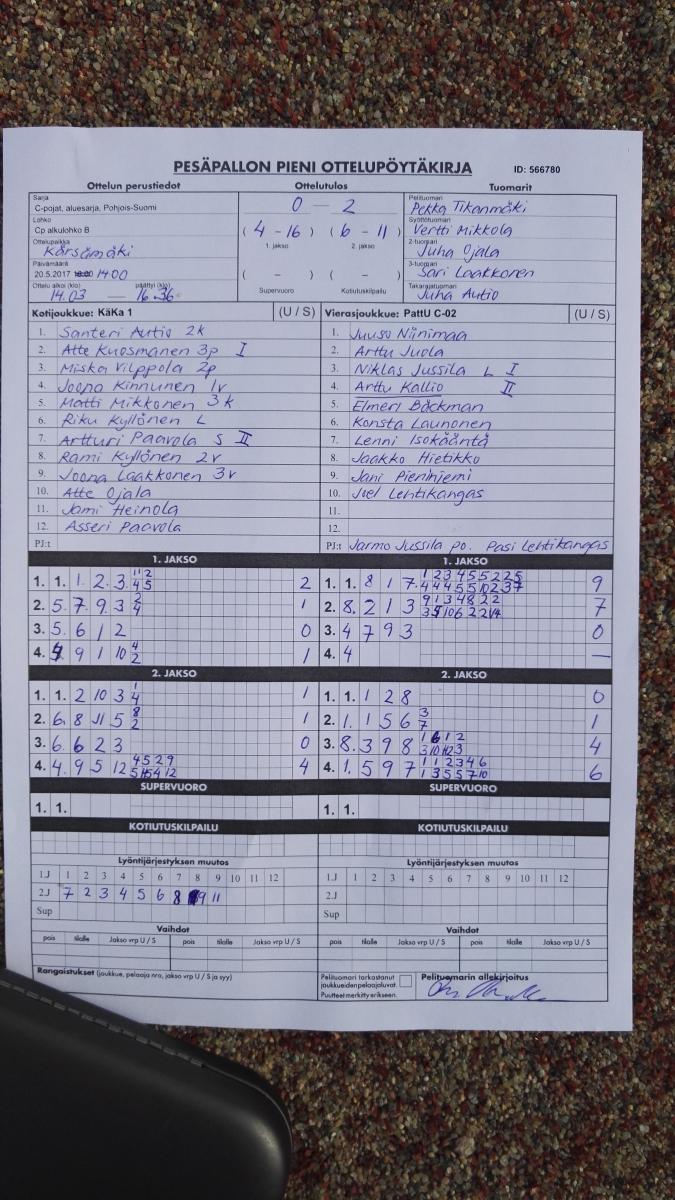 PESÄPALLON PIENI OTTELUPÖYTÄKIRJA ID: 566780
Ottelun perustiedot Ottelutulos Tuomarit
Sarja
C-pojat, aluesarja, Pohjois-Suomi
0 - 2
Pelituomari
Pekka Tikanmäki
Lohko
Cp alkulohko B
( 4 - 16 ) ( 6 - 11 )
1. jakso 2. jakso
Syöttötuomari
Vertti Mikkola
Ottelupaikka
Kärsämäki
2-tuomari
Juha Ojala
Päivämäärä
20.5.2017 18:00 14.00
( - ) ( - )
3-tuomari
Sari Laakkonen
Ottelu alkoi (klo) päättyi (klo)
14.03 16.36
Supervuoro Kotiutuskilpailu
Takarajatuomari
Juha Autio
Kotijoukkue: KäKa 1 (U / S) Vierasjoukkue: PattU C-02 (U / S)
1. Santeri Autio 2k 1. Juuso Niinimaa
2. Atte Kuosmanen 3p I 2. Arttu Juola
3. Miska Vilppola 2p 3. Niklas Jussila L I
4. Joona Kinnunen 1v 4. Arttu Kallio II
5. Matti Mikkonen 3k 5. Elmeri Bäckman
6. Riku Kyllönen L 6. Konsta Launonen
7. Artturi Paavola S II 7. Lenni Isokääntä
8. Rami Kyllönen 2v 8. Jaakko Hietikko
9. Joona Laakkonen 3v 9. Jani Pieniniemi
10. Atte Ojala 10. Joel Lehtikangas
11. Jami Heinola 11.
12. Asseri Paavola 12.
PJ:t PJ:t Jarmo Jussila po. Pasi Lehtikangas
1. JAKSO 1. JAKSO
1. 1. 1 2 3 2 1. 1. 8 1 7 9
2. 5. 7 9 3 1 2. 8. 2 1 3 7
3. 5. 6 1 2 0 3. 4 7 9 3 0
4. 9 1 10 1 4. 4 —
2. JAKSO 2. JAKSO
1. 1. 2 10 3 1 1. 1. 1 2 8 0
2. 6. 8 11 5 1 2. 1. 1 5 6 1
3. 6. 6 2 3 0 3. 8. 3 9 8 4
4. 4. 9 5 12 4 4. 1. 5 9 7 6
SUPERVUORO SUPERVUORO
1. 1. 1. 1.
KOTIUTUSKILPAILU KOTIUTUSKILPAILU
Lyöntijärjestyksen muutos Lyöntijärjestyksen muutos
1J 1 2 3 4 5 6 7 8 9 10 11 12 1J 1 2 3 4 5 6 7 8 9 10 11 12
2J 7 2 3 4 5 6 8 9 11 2J
Sup Sup
Vaihdot Vaihdot
pois tilalle Jakso vrp U / S pois tilalle Jakso vrp U / S pois tilalle Jakso vrp U / S pois tilalle Jakso vrp U / S
Rangaistukset (joukkue, pelaaja nro, jakso vrp U / S ja syy)
Pelituomari tarkastanut
joukkueiden pelaajaluvat.
Puutteet merkitty erikseen.
Pelituomarin allekirjoitus